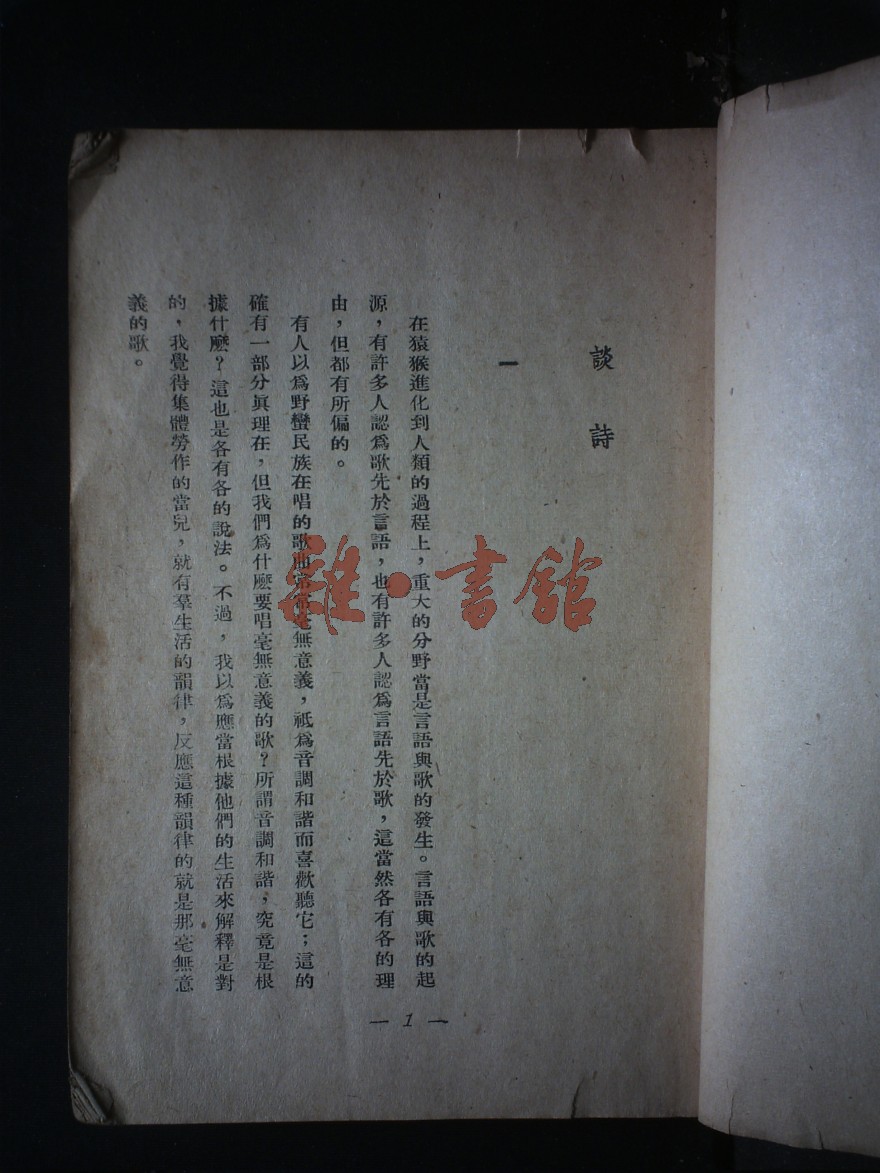 談詩
一
在猿猴進化到人類的過程上，重大的分野當是言語與歌的發生。言語與歌的起
源，有許多人認爲歌先於言語，也有許多人認爲言語先於歌，這當然各有各的理
由，但都有所偏的。
有人以爲野蠻民族在唱的歌曲常常毫無意義，祗爲音調和諧而喜歡聽它；這的
確有一部分眞理在，但我們爲什麽要唱毫無意義的歌？所謂音調和諧，究竟是根
據什麽？這也是各有各的說法。不過，我以爲應當根據他們的生活來解釋是對
的，我覺得集體勞作的當兒，就有羣生活的韻律，反應這種韻律的就是那毫無意
義的歌。
— 1 —
雜·書館